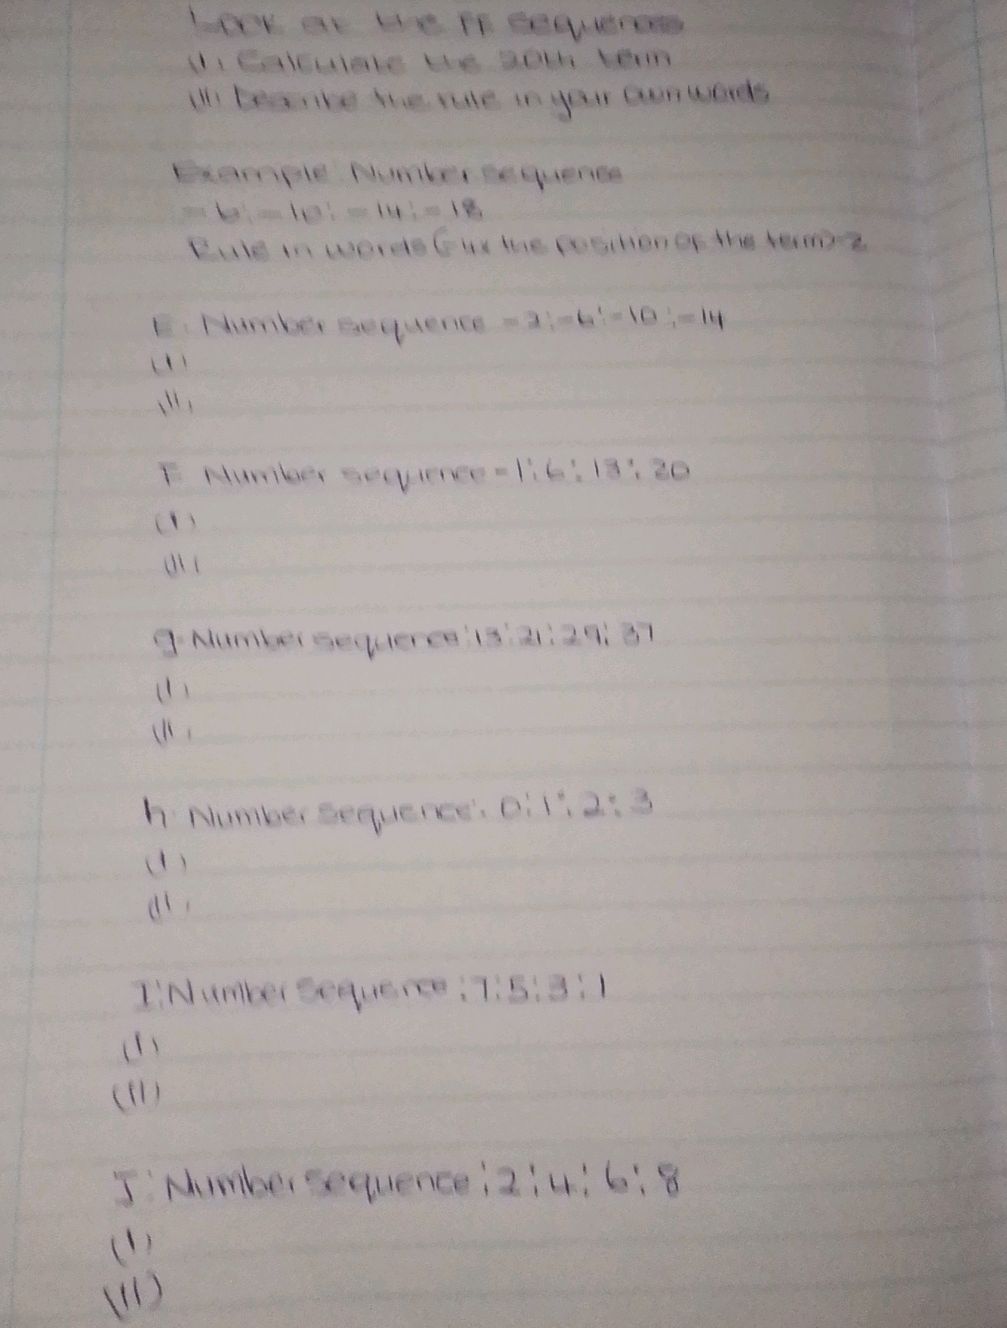 Look at the FF sequences
(I) Calculate the 20th term
(II) Describe the rule in your own words
Example: Number sequence
-6; -10; -14; -18
Rule in words (-4x the position of the term)-2
E. Number sequence -2; -6; -10; -14
(I)
(II)
F Number sequence -1; 6; 13; 20
(I)
(II)
g. Number sequence; 13; 21; 29; 37
(I)
(II)
h. Number sequence: 0; 1; 2; 3
(I)
(II)
I: Number sequence; 7; 5; 3; 1
(I)
(II)
J: Number sequence; 2; 4; 6; 8
(I)
(II)